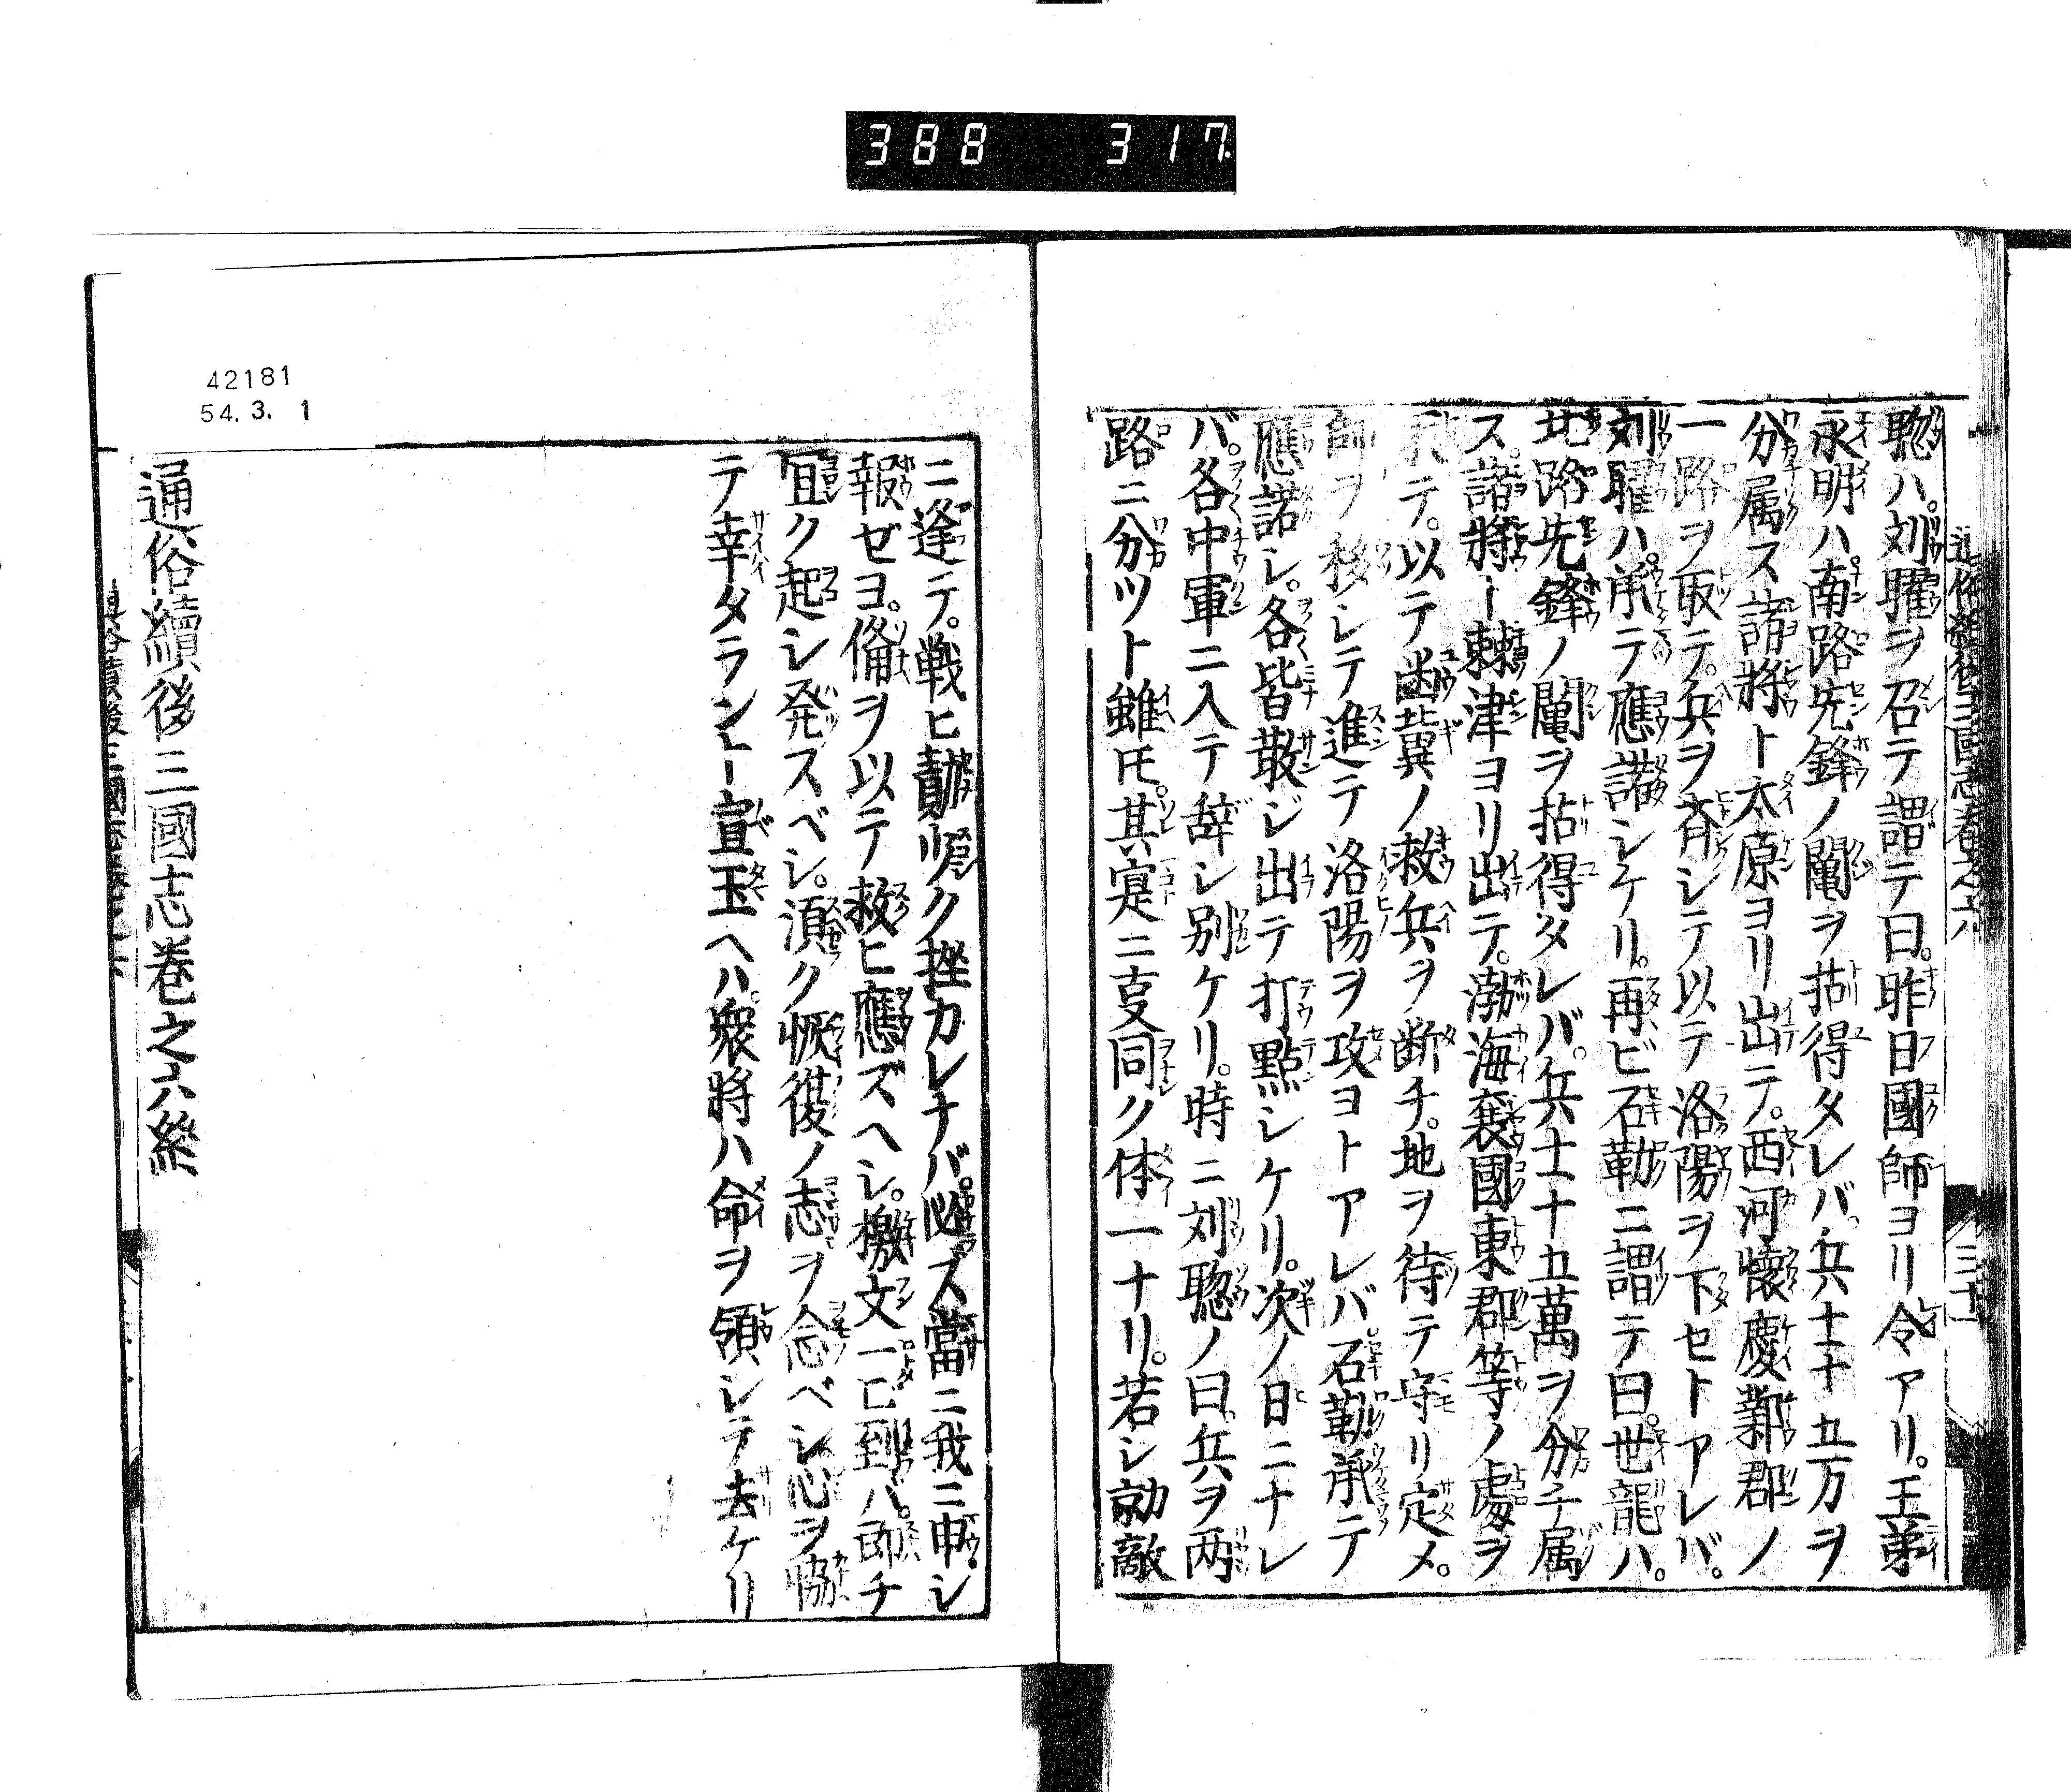 388 317
聡ハ。刘曜ヲ召テ謂テ曰。昨日國師ヨリ令アリ。王弟
永明ハ。南路先鋒ノ鬮ヲ拈得タレバ。兵士十五万ヲ
分属ス諸將ト太原ヨリ出テ。西河懐慶鄴郡ノ
一路ヲ取テ。兵ヲ斉シテ以テ洛陽ヲ下セトアレバ。
刘曜ハ。承テ應諾シケリ。再ビ石勒ニ謂テ曰。世龍ハ。
北路先鋒ノ鬮ヲ拈得タレバ。兵士十五萬ヲ分チ属
ス。諸將ト棘津ヨリ出テ。渤海襄國東郡等ノ處ヲ
テ。以テ幽冀ノ救兵ヲ断チ。地ヲ待テ守リ定メ。
師ヲ移シテ進テ洛陽ヲ攻ヨトアレバ。石勒承テ
應諾シ。各皆散ジ出テ打點シケリ。次ノ日ニナレ
バ。各中軍ニ入テ辞シ別ケリ。時ニ刘聡ノ曰。兵ヲ两
路ニ分ツト雖モ。其寔ニ支同ク体一ナリ。若シ勍敵
ニ逢テ。戦ヒ勣ク挫カレナバ。必ズ當ニ我ニ申シ
報ゼヨ。備ヲ以テ救ヒ應ズヘシ。檄文一ビ到バ。即チ
宜ク起シ発スベシ。湏ク恢復ノ志ヲ念ベシ心ヲ協
テ幸タラント宣玉ヘハ。衆將ハ命ヲ領シテ去ケリ
通俗續後三國志巻之六終
42181
54. 3. 1